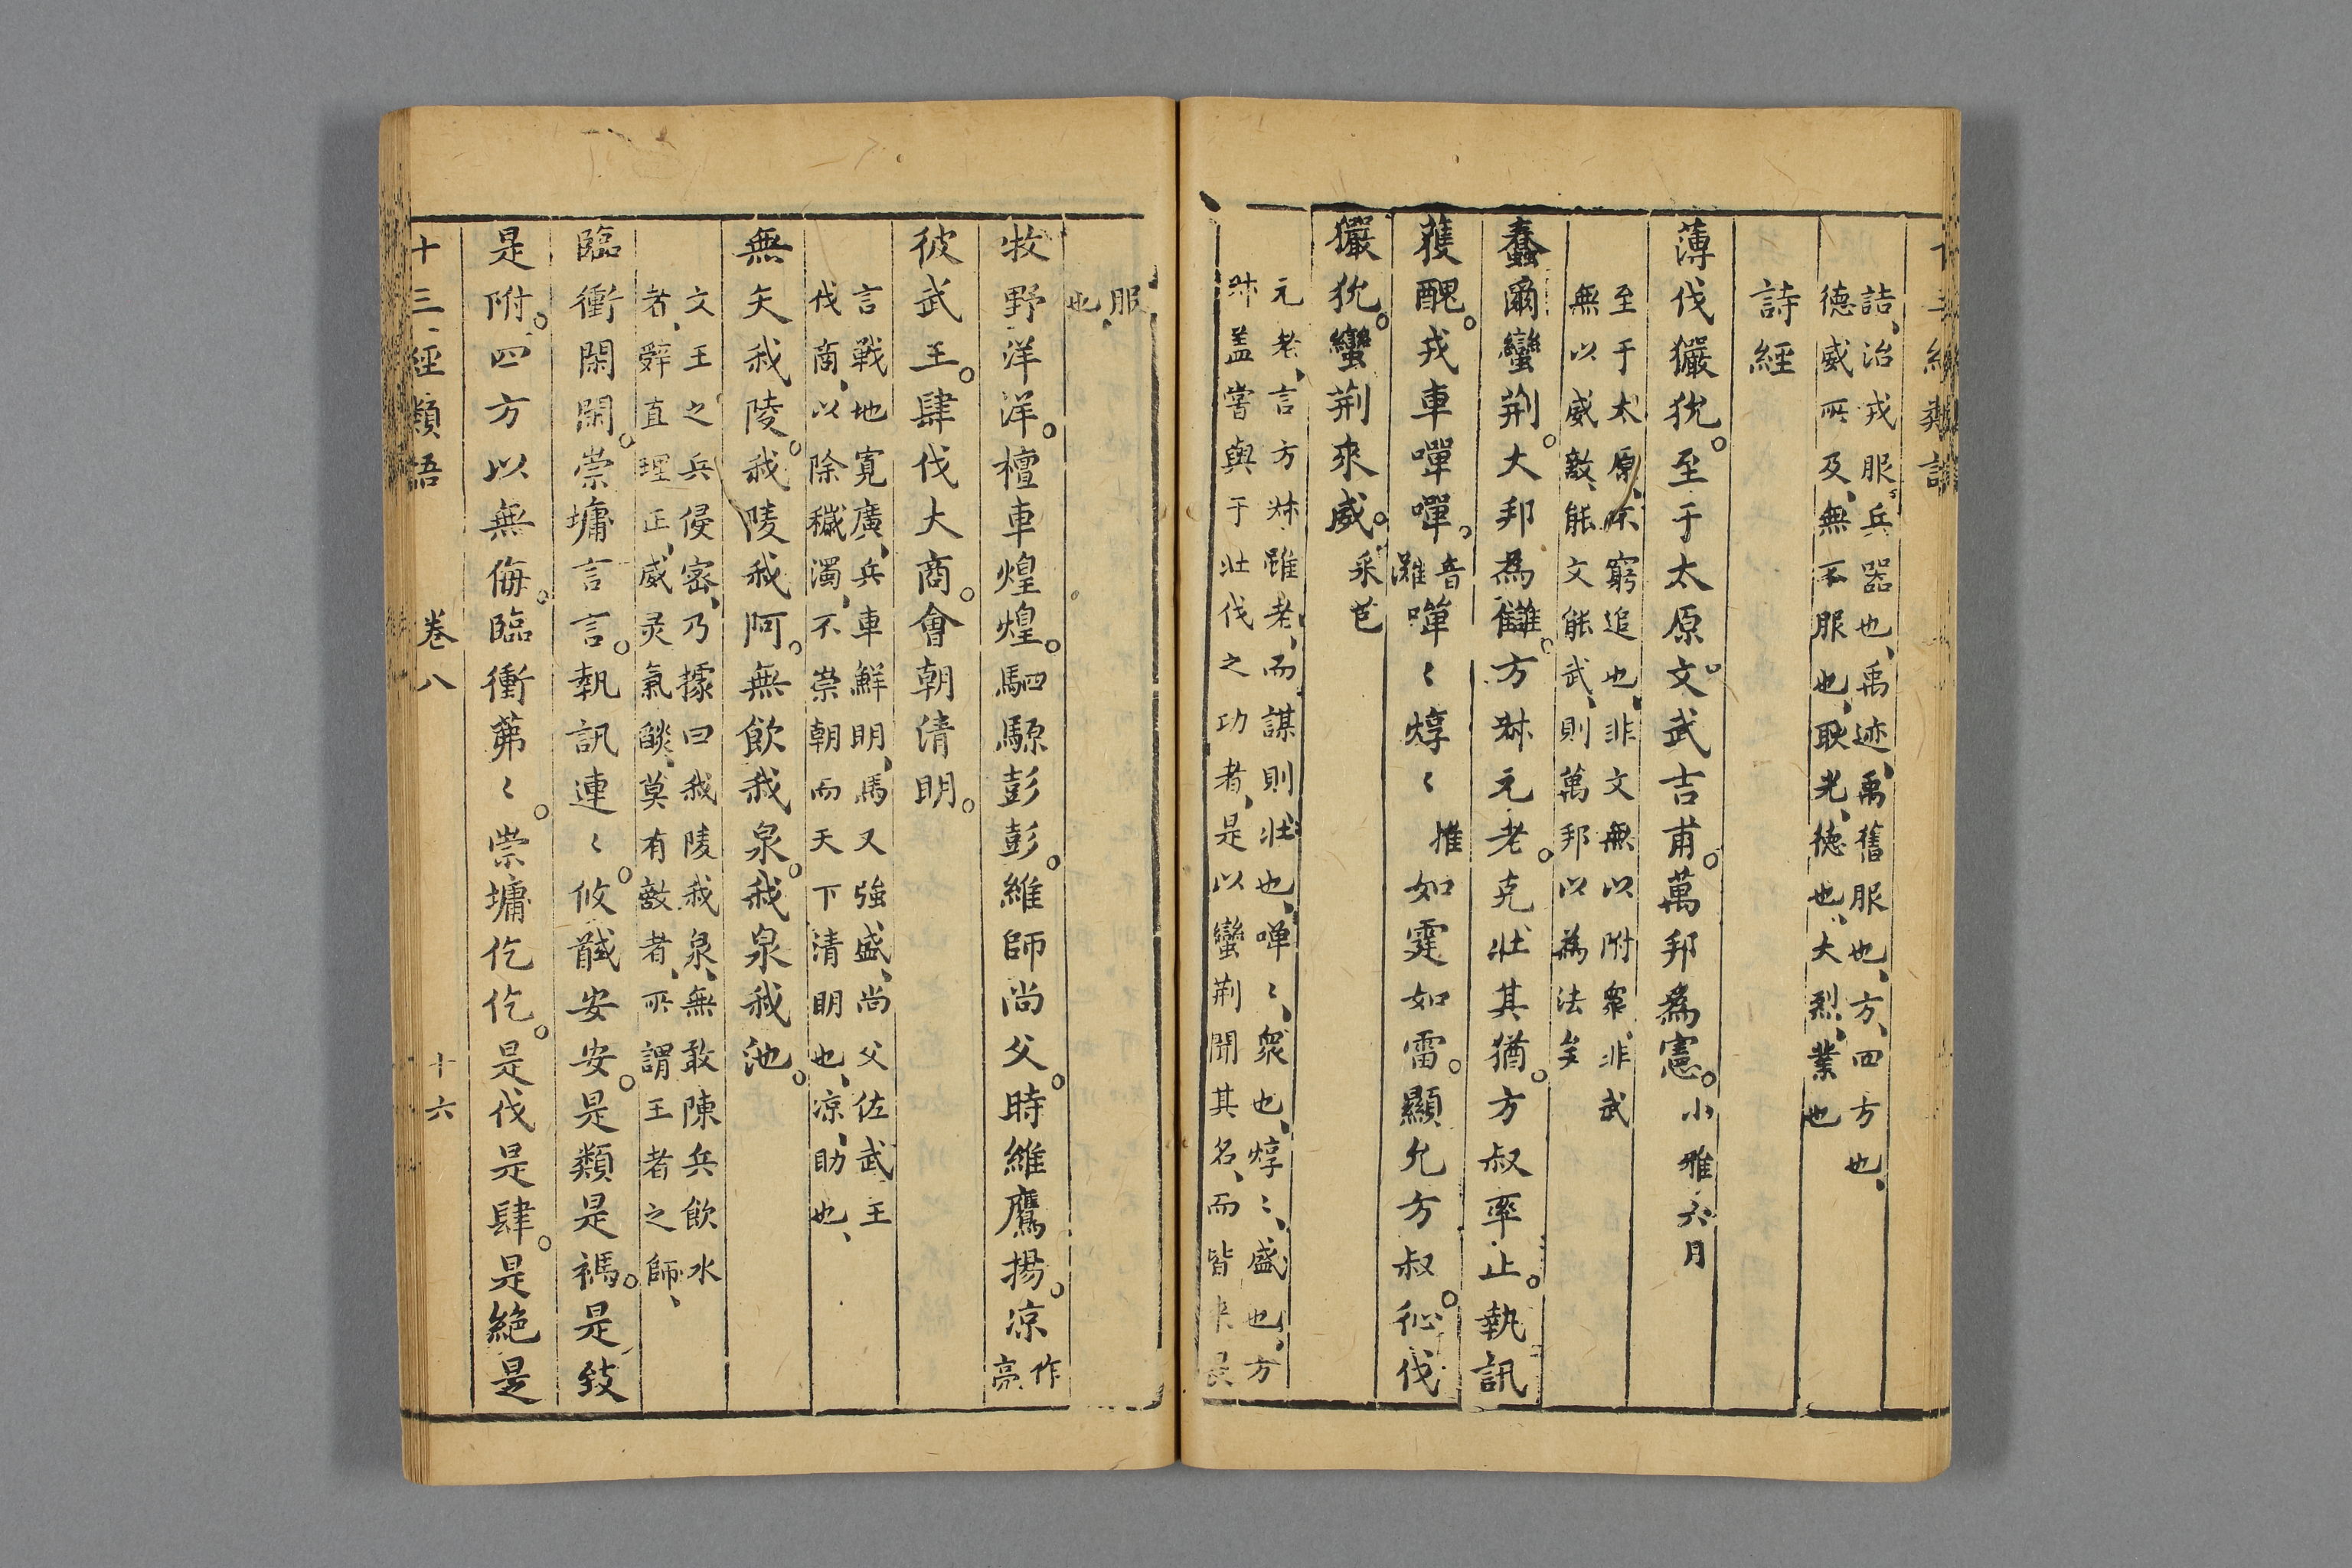 詰、治戎服兵器也、禹迹、禹舊服也、方、四方也、
德威所及、無不服也、耿光、德也、大烈、業也
詩經
薄伐玁狁。至于太原。文武吉甫。萬邦為憲。小雅六月
至于太原、不窮追也、非文無以附衆、非武
無以威敵、能文能武、則萬邦以為法矣
蠢爾蠻荆。大邦為讎。方叔元老。克壯其猶。方叔率止。執訊
獲醜。戎車嘽嘽。音灘嘽〻焞〻推如霆如雷。顯允方叔。征伐
玁狁。蠻荆來威。采芑
元老、言方叔雖老、而謀則壯也、嘽〻、衆也、焞〻、盛也、方
叔盖嘗與于壯伐之功者、是以蠻荆聞其名、而皆来
服
也、
牧野洋洋。檀車煌煌。駟騵彭彭。維師尚父。時維鷹揚。凉作亮
彼武王。肆伐大商。會朝清明。
言戰地寬廣、兵車鮮明、馬又強盛、尚父佐武王
伐商、以除穢濁、不崇朝而天下清明也、凉、助也、
無矢我陵。我陵我阿。無飲我泉。我泉我池。
文王之兵侵密、乃據曰我陵我泉、無敢陳兵飲水
者、辭直理正、威灵氣燄、莫有敵者、所謂王者之師、
臨衝閑閑。崇墉言言。執訊連〻。攸馘安安。是類是禡。是致
是附。四方以無侮。臨衝茀〻。崇墉仡仡。是伐是肆。是絶是
十三經類語 卷八 十六